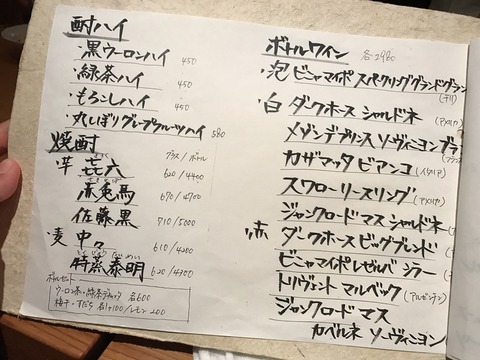 酎ハイ
・黒ウーロンハイ 450
・緑茶ハイ 450
・もろこしハイ 450
・丸しぼりグレープフルーツハイ 580
焼酎 グラス/ボトル
芋 㐂六 620/4400
赤兎馬 670/4700
佐藤黒 710/5000
・麦 中々 610/4200
特蒸泰明 620/4300
ボトルセット
ウーロン茶・緑茶デキャンタ 各600
梅干・すだち 各1ヶ100/レモン 200
ボトルワイン 各2980
・泡 ビニャマイポ スパークリンググラングラン
(チリ)
・白 ダークホース シャルドネ (アメリカ)
メゾンデプリンス ソーヴィニヨンブラ
カザマッタ ビアンコ (イタリア)
スワローリースリング (アメリカ)
ジャンクロード マス シャルドネ
・赤 ダークホース ビッグブレンド
ビニャマイポ レゼルバ シラー
トリヴェント マルベック (アルゼンチン)
ジャンクロード マス
カベルネ ソーヴィニヨン